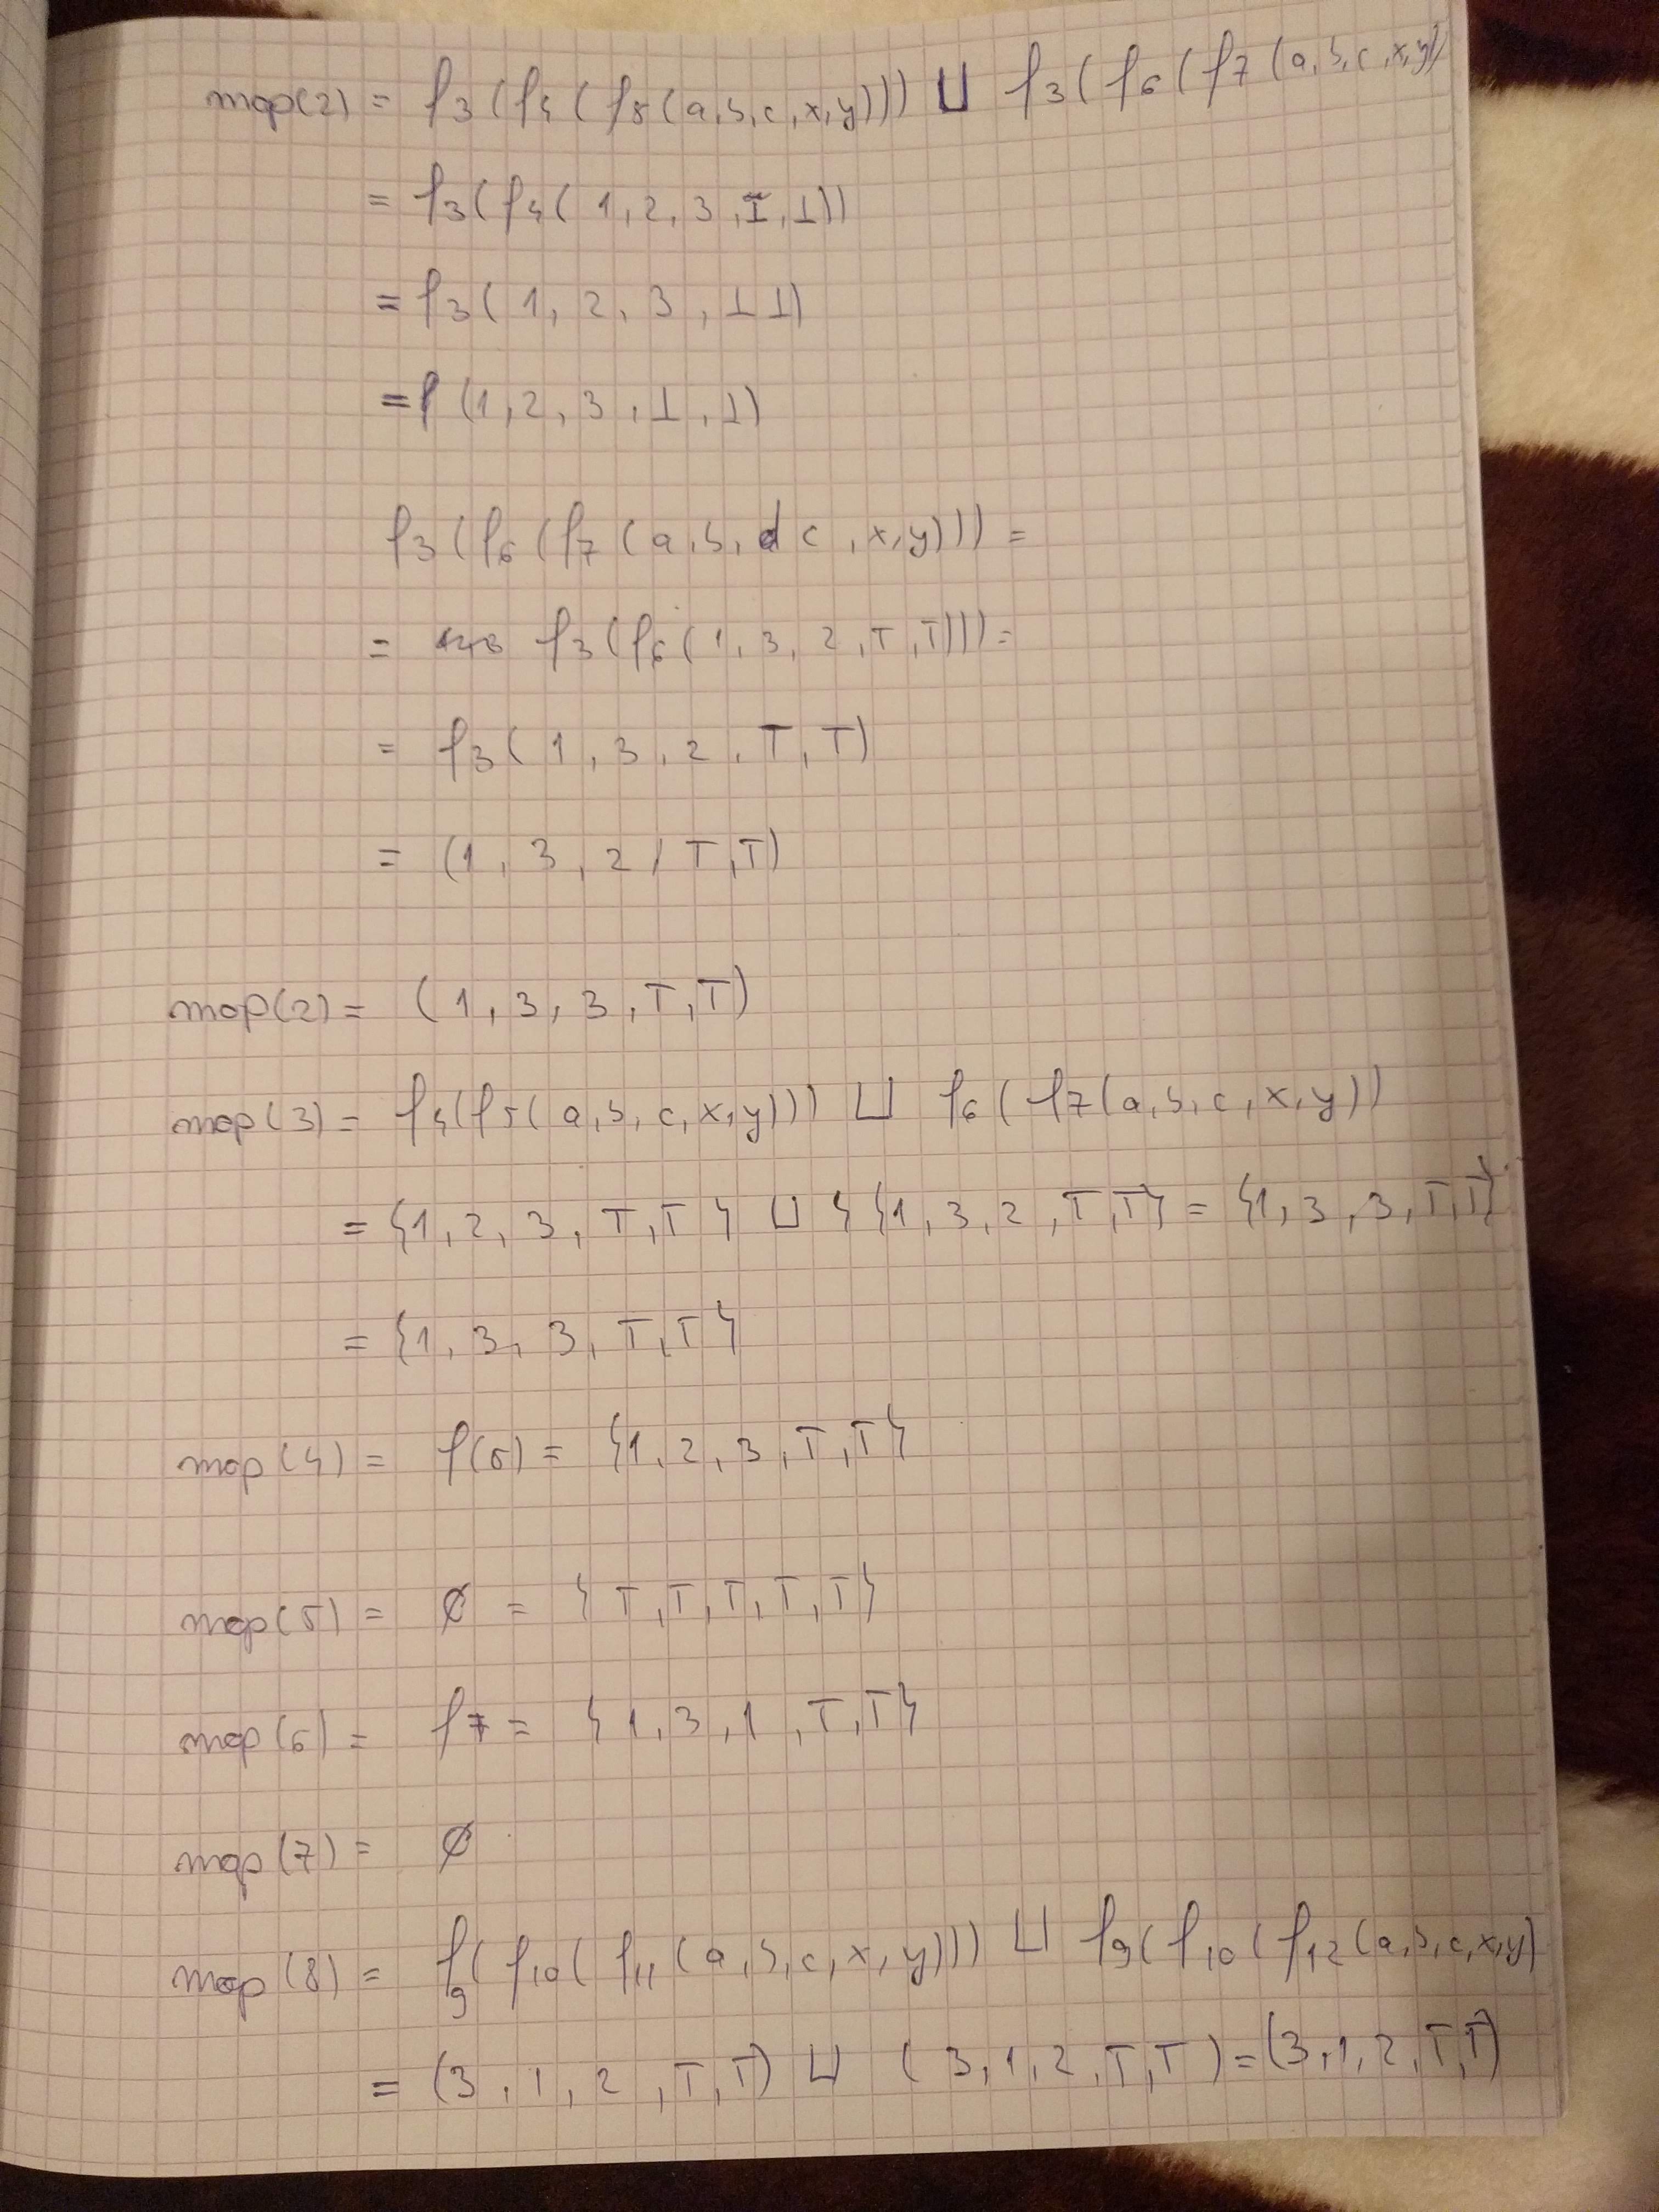 mop(2) = f3(f4(f5(a,b,c,x,y))) ⊔ f3(f6(f7(a,b,c,x,y)
= f3(f4(1,2,3,⊥,⊥))
= f3(1,2,3,⊥⊥)
= f(1,2,3,⊥,⊥)
f3(f6(f7(a,b,c,x,y))) =
= f3(f6(1,3,2,T,T))) =
= f3(1,3,2,T,T)
= (1,3,2,T,T)
mop(2) = (1,3,3,T,T)
mop(3) = f4(f5(a,b,c,x,y))) ⊔ f6(f7(a,b,c,x,y))
= {1,2,3,T,T} ⊔ {{1,3,2,T,T} = {1,3,3,T,T}
= {1,3,3,T,T}
mop(4) = f(5) = {1,2,3,T,T}
mop(5) = ∅ = {T,T,T,T,T}
mop(6) = f7 = {1,3,1,T,T}
mop(7) = ∅
mop(8) = f9(f10(f11(a,b,c,x,y))) ⊔ f9(f10(f12(a,b,c,x,y)
= (3,1,2,T,T) ⊔ (3,1,2,T,T) = (3,1,2,T,T)